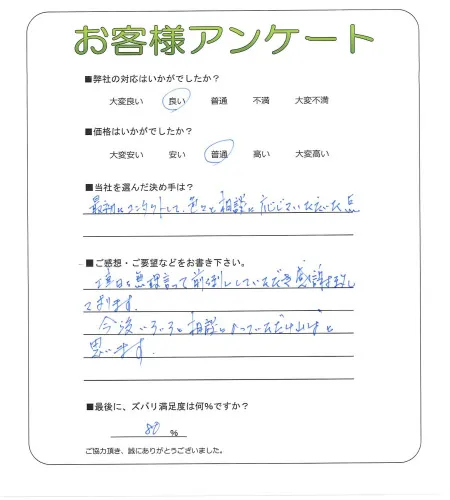 お客様アンケート
■弊社の対応はいかがでしたか?
大変良い 良い 普通 不満 大変不満
■価格はいかがでしたか?
大変安い 安い 普通 高い 大変高い
■当社を選んだ決め手は?
最初にコンタクトして、色々と相談に応じていただいた点
■ご感想・ご要望などをお書き下さい。
無理言って前倒ししていただき感謝致し
ております。
今後いろいろと相談にのっていただければと
思います。
■最後に、ズバリ満足度は何%ですか?
80 %
ご協力頂き、誠にありがとうございました。